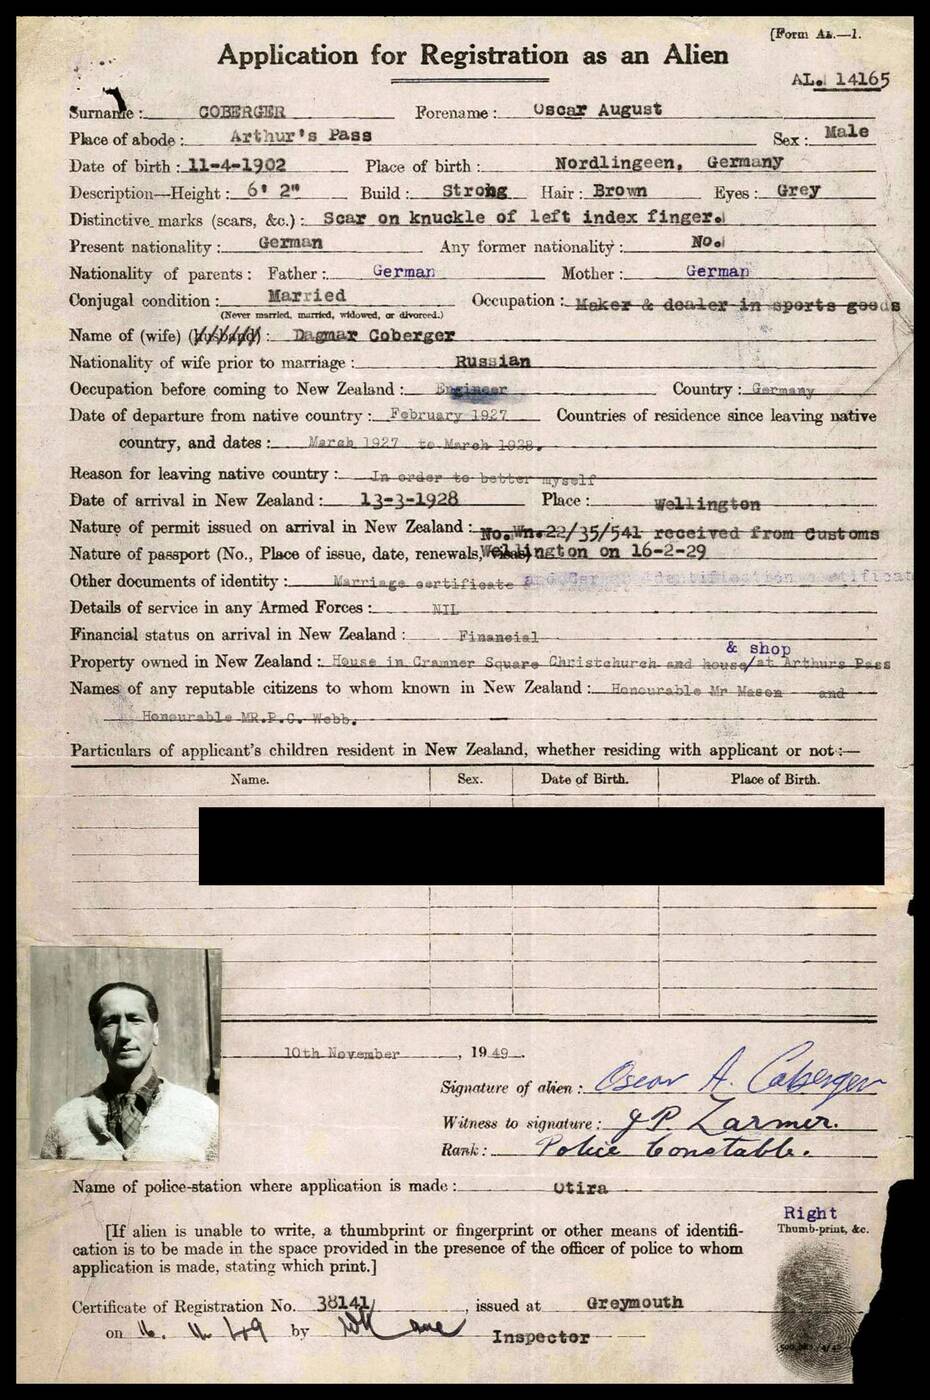 [Form AL.—1.
Application for Registration as an Alien
AL. 14165
Surname : COBERGER Forename : Oscar August
Place of abode : Arthur's Pass Sex : Male
Date of birth : 11-4-1902 Place of birth : Nordlingeen, Germany
Description—Height : 6' 2" Build : Strong Hair : Brown Eyes : Grey
Distinctive marks (scars, &c.) : Scar on knuckle of left index finger.
Present nationality : German Any former nationality : No.
Nationality of parents : Father : German Mother : German
Conjugal condition : Married Occupation : Maker & dealer in sports goods
(Never married, married, widowed, or divorced.)
Name of (wife) (husband) : Dagmar Coberger
Nationality of wife prior to marriage : Russian
Occupation before coming to New Zealand : Engineer Country : Germany
Date of departure from native country : February 1927 Countries of residence since leaving native
country, and dates : March 1927 to March 1928.
Reason for leaving native country : In order to better myself
Date of arrival in New Zealand : 13-3-1928 Place : Wellington
Nature of permit issued on arrival in New Zealand : No.Wn.22/35/541 received from Customs
Nature of passport (No., Place of issue, date, renewals, Wellington on 16-2-29
Other documents of identity : Marriage certificate and
Details of service in any Armed Forces : NIL
Financial status on arrival in New Zealand : Financial
& shop
Property owned in New Zealand : House in Cranmer Square Christchurch and house/at Arthurs Pass
Names of any reputable citizens to whom known in New Zealand : Honourable Mr Mason and
Honourable MR.P.C. Webb.
Particulars of applicant's children resident in New Zealand, whether residing with applicant or not :—
Name. Sex. Date of Birth. Place of Birth.
10th November , 19 49.
Signature of alien : Oscar A. Coberger
Witness to signature : J P. Larmer.
Rank : Police Constable.
Name of police-station where application is made : Otira
Right
Thumb-print, &c.
[If alien is unable to write, a thumbprint or fingerprint or other means of identifi-
cation is to be made in the space provided in the presence of the officer of police to whom
application is made, stating which print.]
Certificate of Registration No. 38141 , issued at Greymouth
on 16. 11. 49 by
Inspector